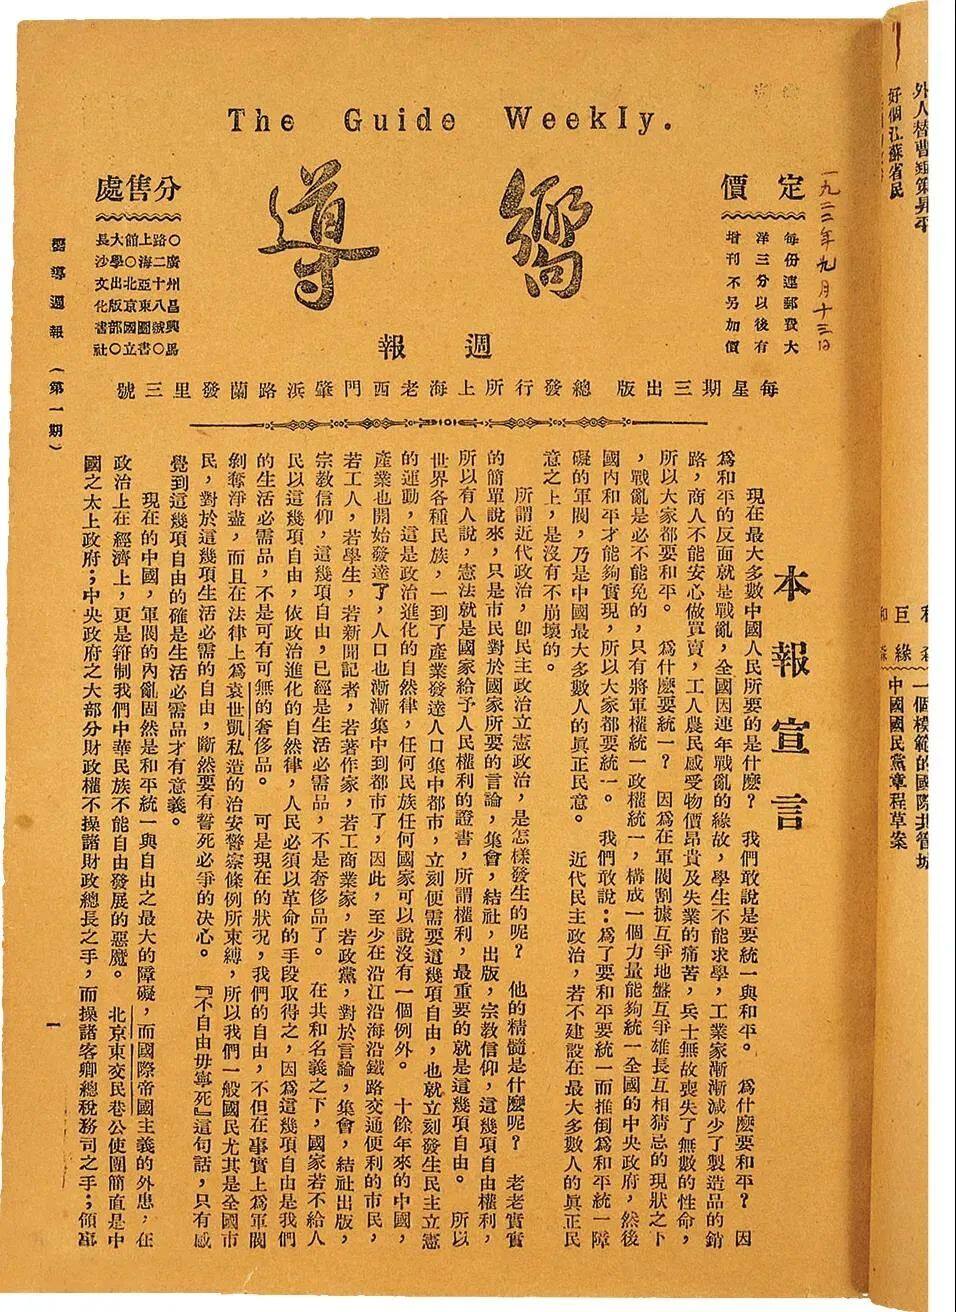 The Guide Weekly.
嚮導
週報
定價
每份連郵費大
洋三分以後有
增刊不另加價
一九二二年九月十三日
分售處
○廣州昌興馬
路二十八號○
上海亞東圖書
館○北京國立
大學出版部○
長沙文化書社
每星期三出版 總發行所上海老西門肇浜路蘭發里三號
本報宣言
現在最大多數中國人民所要的是什麽? 我們敢說是要統一與和平。 爲什麽要和平? 因
爲和平的反面就是戰亂,全國因連年戰亂的緣故,學生不能求學,工業家漸漸減少了製造品的銷
路,商人不能安心做買賣,工人農民感受物價昂貴及失業的痛苦,兵士無故喪失了無數的性命,
所以大家都要和平。 爲什麽要統一? 因爲在軍閥割據互爭地盤互爭雄長互相猜忌的現狀之下
,戰亂是必不能免的,只有將軍權統一政權統一,構成一個力量能夠統一全國的中央政府,然後
國內和平才能夠實現,所以大家都要統一。 我們敢說:爲了要和平要統一而推倒爲和平統一障
礙的軍閥,乃是中國最大多數人的眞正民意。 近代民主政治,若不建設在最大多數人的眞正民
意之上,是沒有不崩壞的。
所謂近代政治,卽民主政治立憲政治,是怎樣發生的呢? 他的精髓是什麽呢? 老老實實
的簡單說來,只是市民對於國家所要的言論,集會,結社,出版,宗教信仰,這幾項自由權利,
所以有人說,憲法就是國家給予人民權利的證書,所謂權利,最重要的就是這幾項自由。 所以
世界各種民族,一到了產業發達人口集中都市,立刻便需要這幾項自由,也就立刻發生民主立憲
的運動,這是政治進化的自然律,任何民族任何國家可以說沒有一個例外。 十餘年來的中國,
產業也開始發達了,人口也漸漸集中到都市了,因此,至少在沿江沿海沿鐵路交通便利的市民,
若工人,若學生,若新聞記者,若著作家,若工商業家,若政黨,對於言論,集會,結社出版,
宗教信仰,這幾項自由,已經是生活必需品,不是奢侈品了。 在共和名義之下,國家若不給人
民以這幾項自由,依政治進化的自然律,人民必須以革命的手段取得之,因爲這幾項自由是我們
的生活必需品,不是可有可無的奢侈品。 可是現在的狀況,我們的自由,不但在事實上爲軍閥
剝奪淨盡,而且在法律上爲袁世凱私造的治安警察條例所束縛,所以我們一般國民尤其是全國市
民,對於這幾項生活必需的自由,斷然要有誓死必爭的決心。 『不自由毋寧死』這句話,只有感
覺到這幾項自由的確是生活必需品才有意義。
現在的中國,軍閥的內亂固然是和平統一與自由之最大的障礙,而國際帝國主義的外患,在
政治上在經濟上,更是箝制我們中華民族不能自由發展的惡魔。 北京東交民巷公使團簡直是中
國之太上政府;中央政府之大部分財政權不操諸財政總長之手,而操諸客卿總稅務司之手;領事
嚮導週報 (第一期)
一
好個江蘇省民
巨緣
一個模範的國際共管城
中國國民黨章程草案